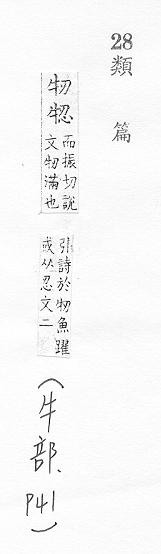 28
類篇
牣
而振切說
文牣滿也
引詩於牣魚躍
或从忍文二
(牛部、P41)